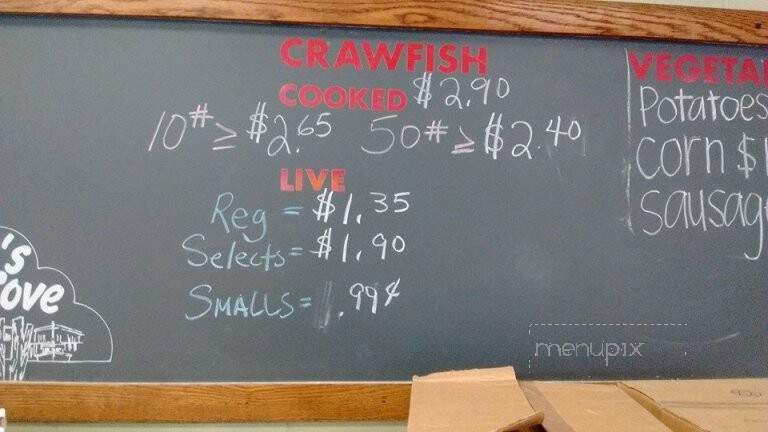 CRAWFISH
COOKED $2.90
10# ≥ $2.65 50# ≥ $2.40
LIVE
Reg = $1.35
Selects = $1.90
SMALLS = .99¢
VEGETA
Potatoes
corn $1
sausag
's
ove
menupix